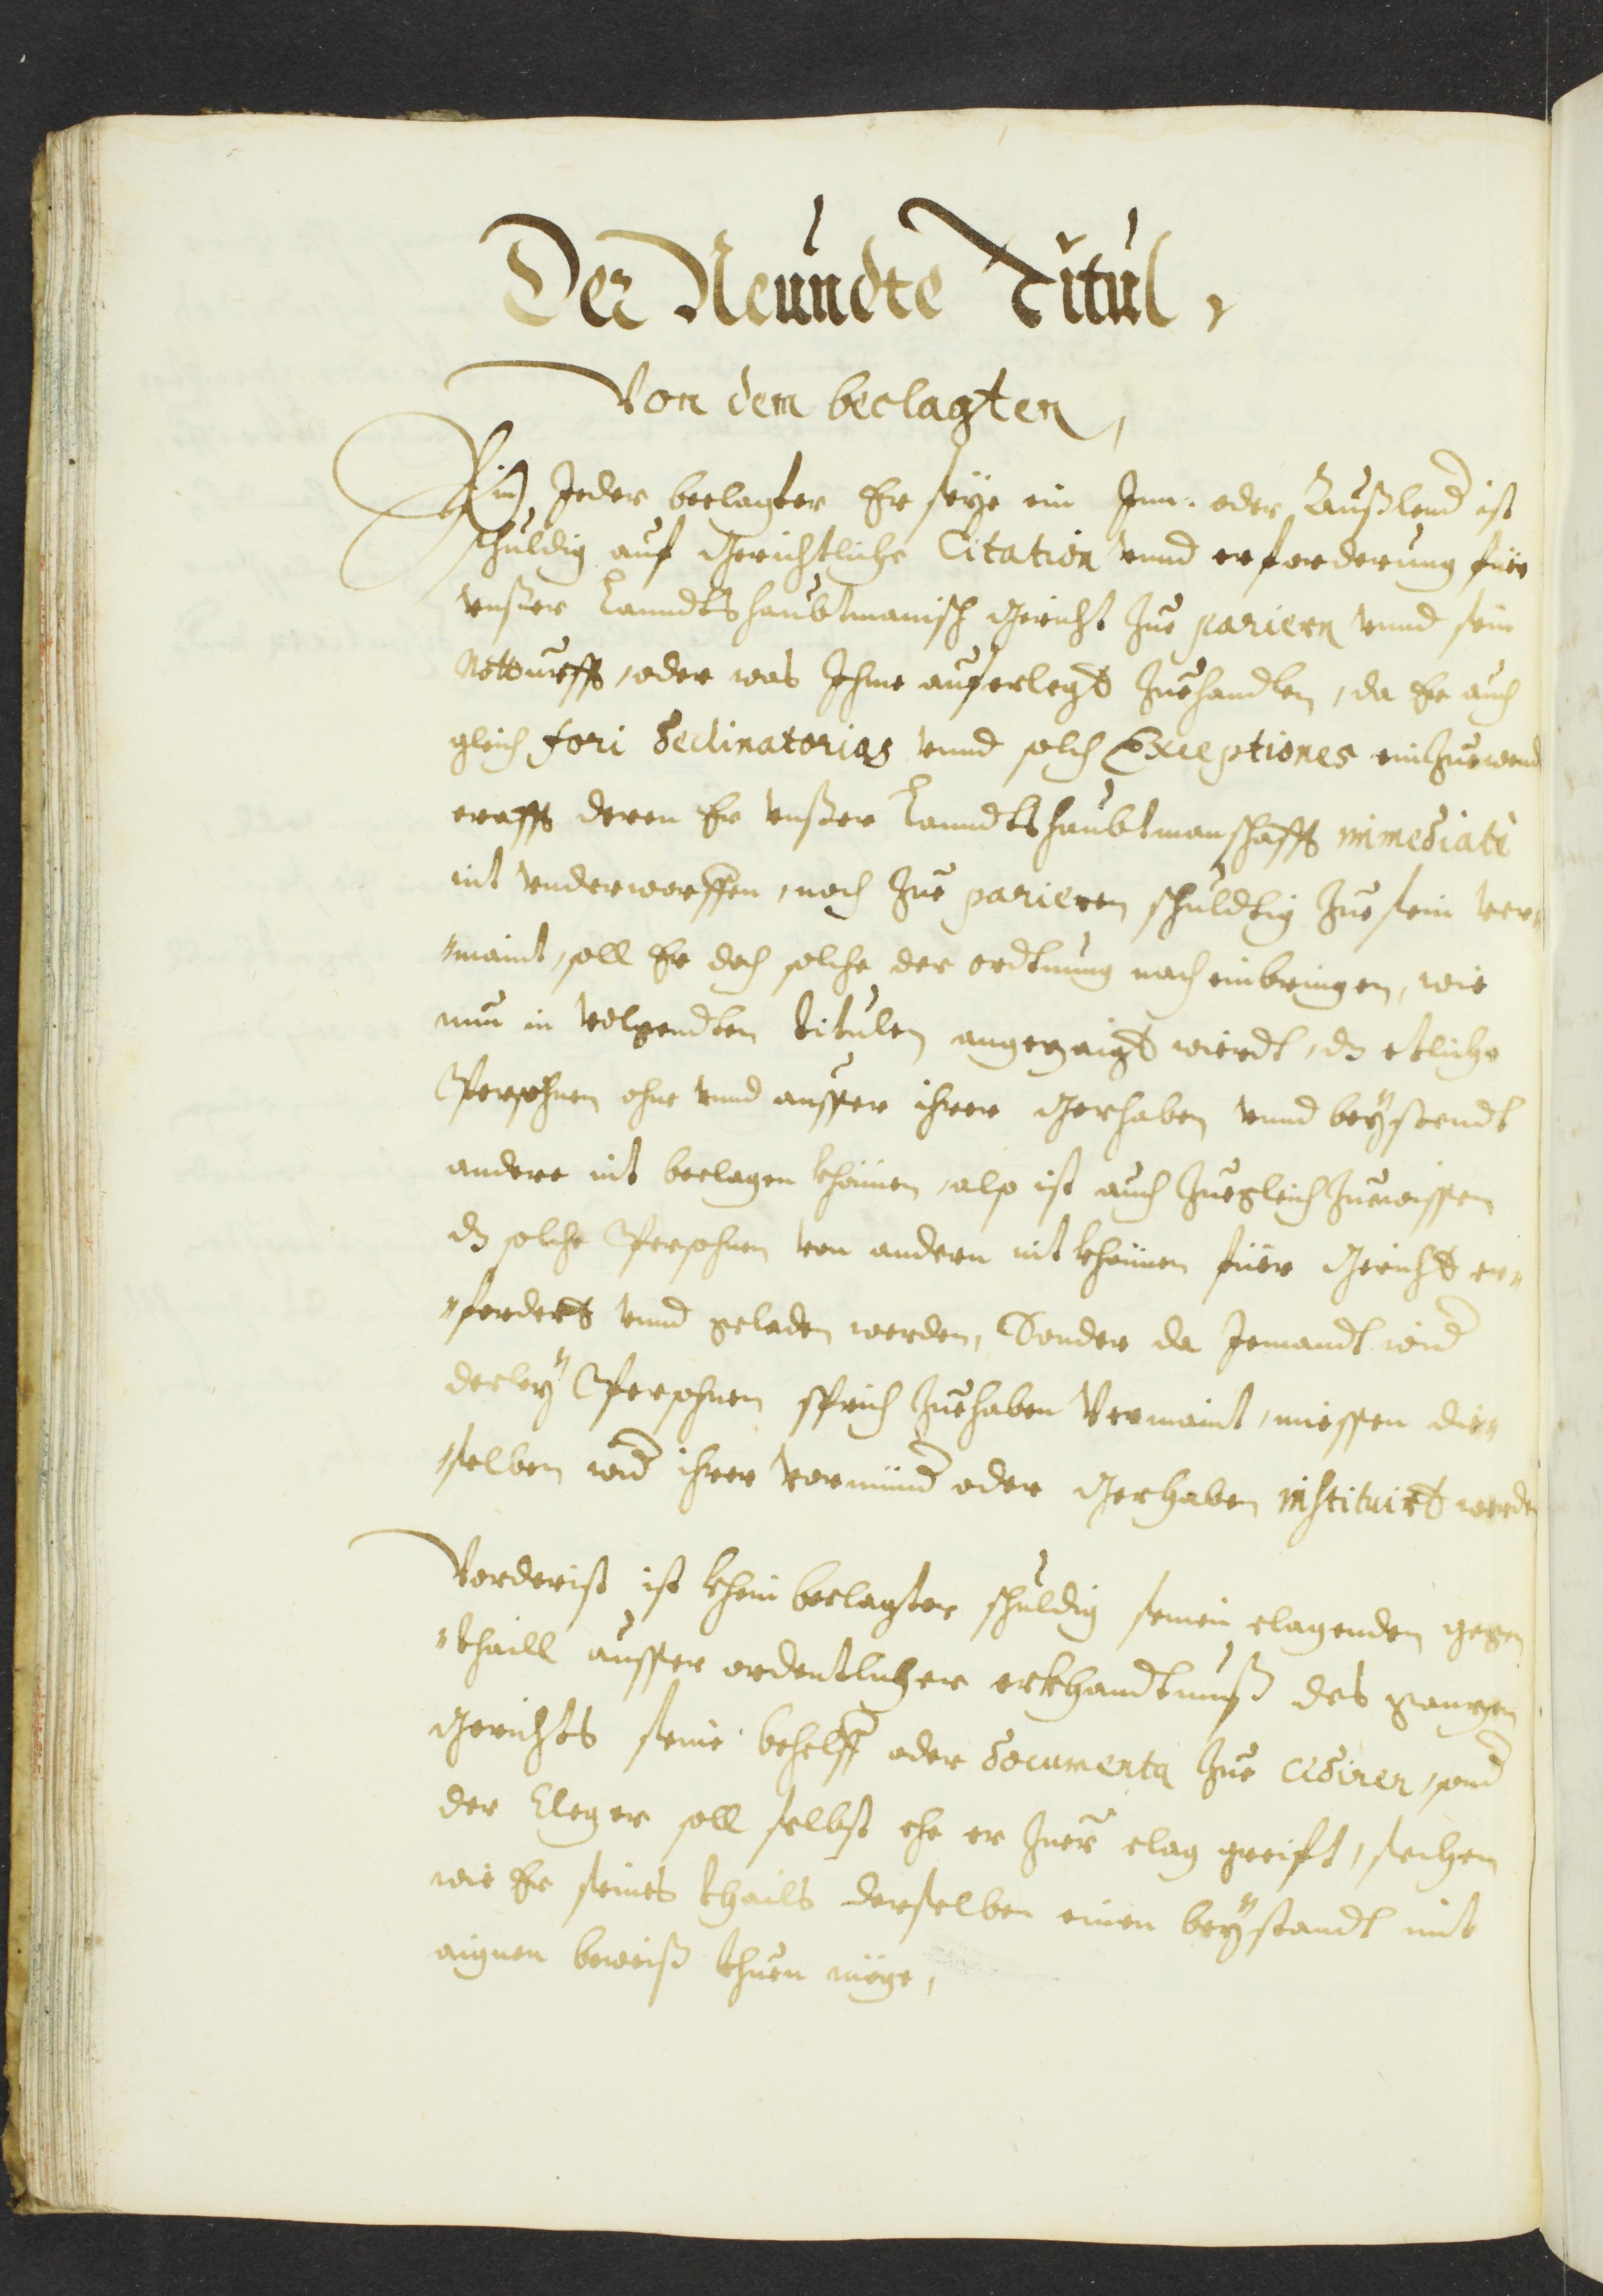 Der Neundte Titul,
Von dem beclagten,
Ein Jeder beclagter Er seÿe ein Inn: oder Außlend ist
schuldig auf Gerichtliche Citation vnnd erforderung für
vnßer Lanndtshaubtmanisch Gericht Zue pariern vnnd sein
Notturfft, oder was Ihme auferlegt Zuehandlen, da Er auch
gleich fori declinatorias vnnd solch Exceptiones einZuewend
crafft deren Er vnßer Lanndtshaubtmanschafft immediatè
nit vnderworffen, noch Zue parieren schuldtig Zue sein ver„
„maint, soll Er doch solche der ordtnung nach einbringen, wie
nun in volgendten titulen angezaigt wierdt, dz etliche
Persohnen ohne vnnd ausser ihrer Gerhaben vnnd beÿstendt
andere nit beclagen khönnen, also ist auch Zuegleich Zuewissen
dz solche Persohnen von andern nit khönnen füer Gericht er„
„fordert vnnd geladen werden, Sonder da Jemandt wid
derleÿ Persohnen sprich Zuehaben Vermaint, miessen die„
„selben wid ihrer vormünd oder Gerhaben instituirt werde
Vorderist ist khein beclagter schuldig seinen clagenden gegen
„thaill ausser ordentlicher erkhandtnuß des ganzen
Gerichts seine behelff oder documenta Zue edirer, sond
der Cleger soll selbst ehe er Zuer clag greift, sechen
wie Er seines thails derselben einen beÿstandt mit
aignen beweiß thuen möge,